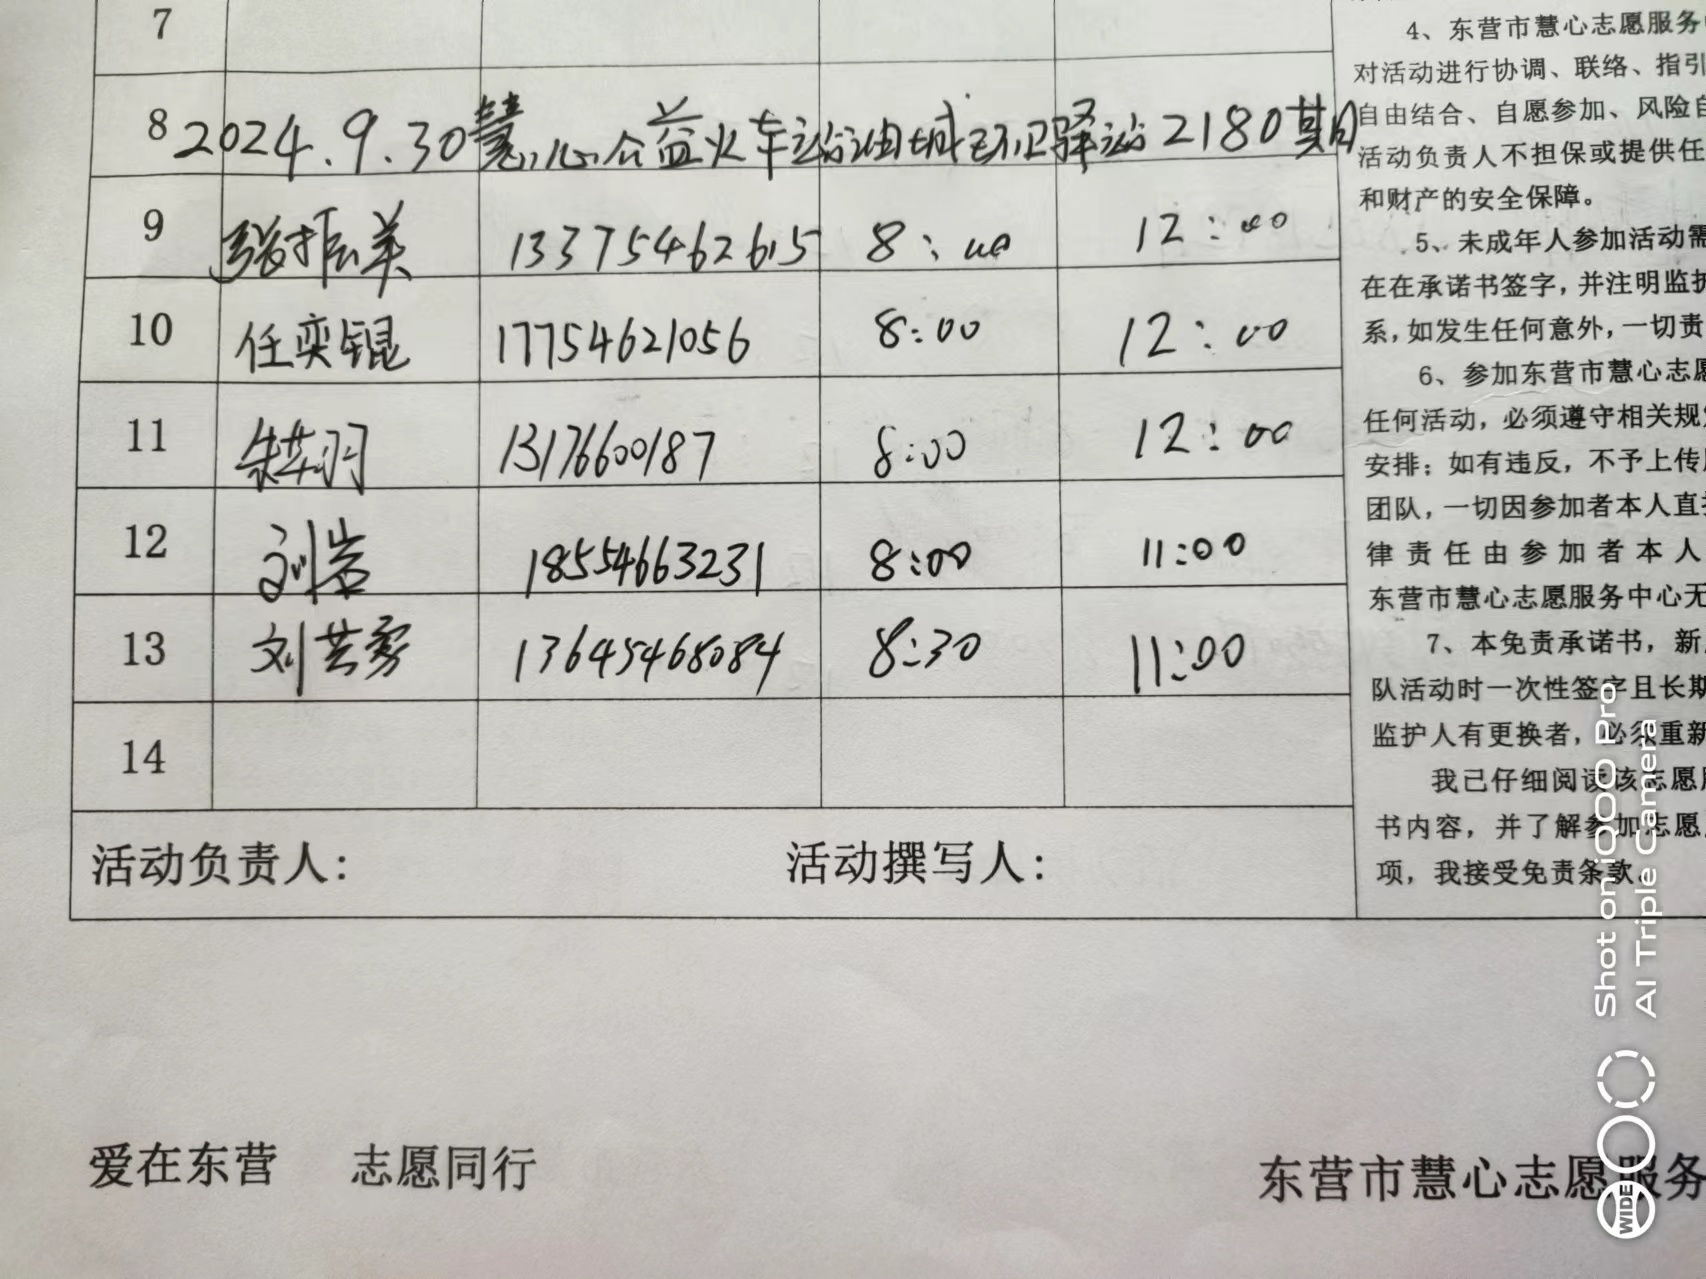 7
8 2024.9.30慧心公益火车站油城环卫驿站2180期
9 张振美 13375462615 8:00 12:00
10 任奕锟 17754621056 8:00 12:00
11 13176600187 8:00 12:00
12 刘岩 18554663231 8:00 11:00
13 刘芸 13645468084 8:30 11:00
14
活动负责人: 活动撰写人:
4、东营市慧心志愿服务
对活动进行协调、联络、指引
自由结合、自愿参加、风险自
活动负责人不担保或提供任
和财产的安全保障。
5、未成年人参加活动需
在在承诺书签字,并注明监护
系,如发生任何意外,一切责
6、参加东营市慧心志愿
任何活动,必须遵守相关规定
安排;如有违反,不予上传
团队,一切因参加者本人直接
律责任由参加者本人
东营市慧心志愿服务中心无
7、本免责承诺书,新
队活动时一次性签字且长期
监护人有更换者,必须重新
我已仔细阅读该志愿
书内容,并了解参加志愿
项,我接受免责条款。
爱在东营 志愿同行
东营市慧心志愿服务
Shot on iQOO Pro
AI Triple Camera
WIDE